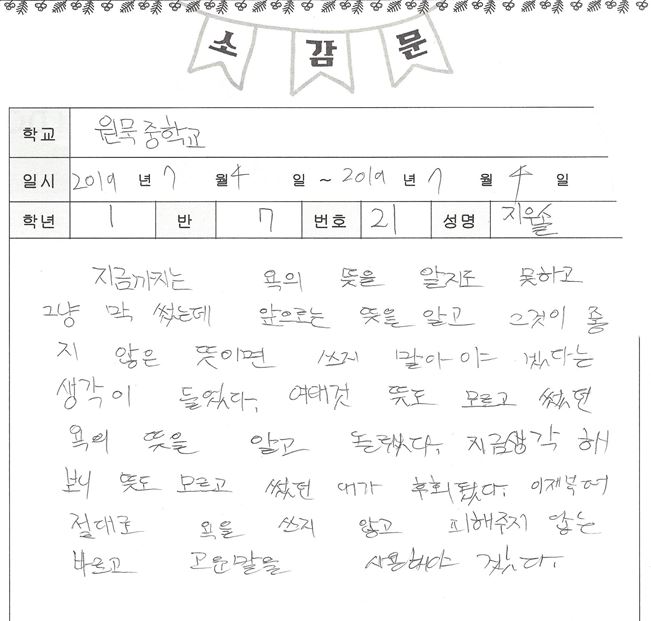 소감문
학교 원묵중학교
일시 2019 년 7 월 4 일 ~ 2019 년 7 월 4 일
학년 1 반 7 번호 21 성명 지우솔
지금까지는 욕의 뜻을 알지도 못하고
그냥 막 썼는데 앞으로는 뜻을 알고 그것이 좋
지 않은 뜻이면 쓰지 말아야 겠다는
생각이 들었다. 여태껏 뜻도 모르고 썼던
욕의 뜻을 알고 놀랐다. 지금생각 해
보니 뜻도 모르고 썼던 내가 후회됐다. 이제부터
절대로 욕을 쓰지 않고 피해주지 않는
바르고 고운말을 사용해야 겠다.